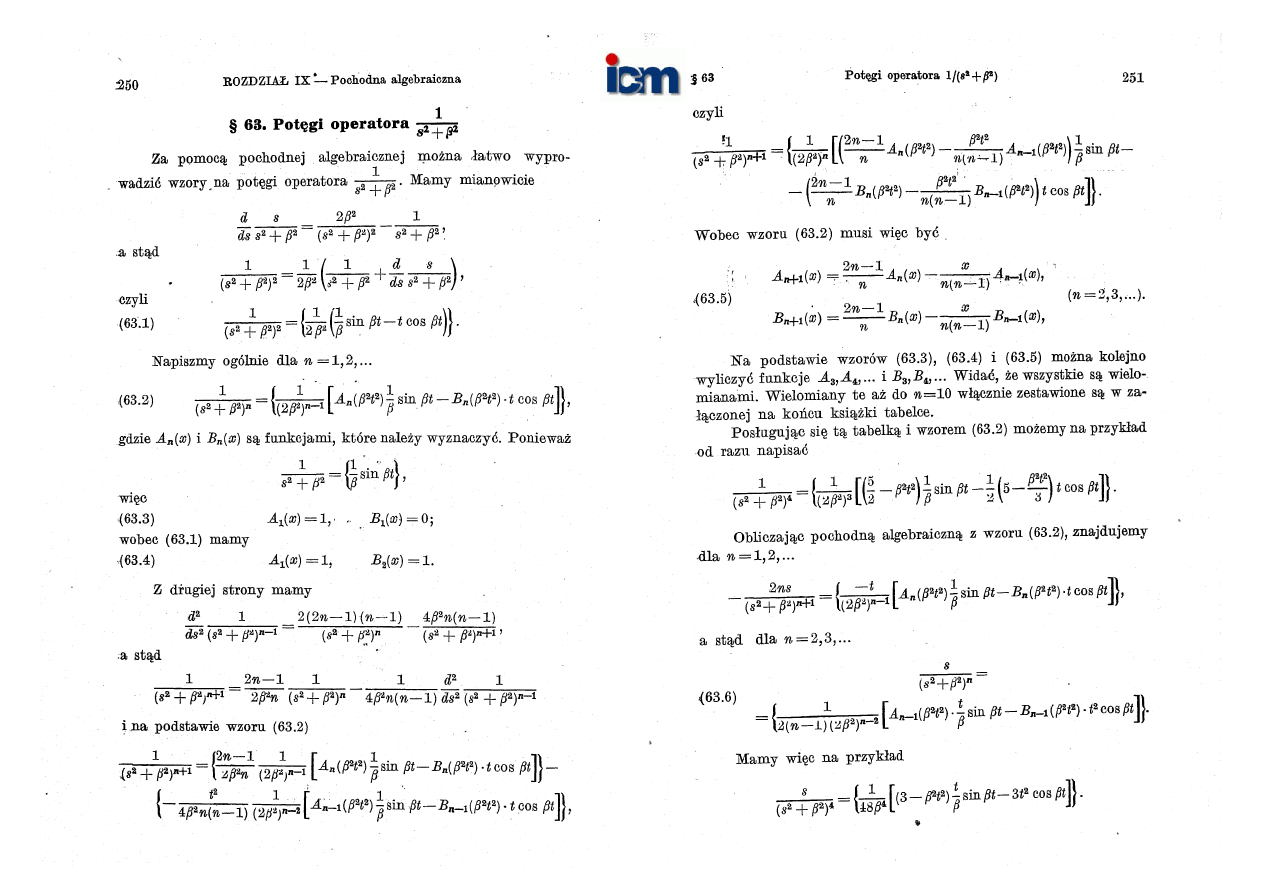 250 ROZDZIAŁ IX — Pochodna algebraiczna
§ 63. Potęgi operatora 1/(s² + β²)
Za pomocą pochodnej algebraicznej można łatwo wypro-
wadzić wzory na potęgi operatora 1/(s² + β²). Mamy mianowicie
d/ds s/(s² + β²) = 2β²/(s² + β²)² − 1/(s² + β²),
a stąd
1/(s² + β²)² = 1/(2β²) (1/(s² + β²) + d/ds s/(s² + β²)),
czyli
(63.1) 1/(s² + β²)² = {1/(2β²) (1/β sin βt − t cos βt)}.
Napiszmy ogólnie dla n = 1,2,...
(63.2) 1/(s² + β²)ⁿ = {1/(2β²)ⁿ⁻¹ [Aₙ(β²t²) 1/β sin βt − Bₙ(β²t²)·t cos βt]},
gdzie Aₙ(x) i Bₙ(x) są funkcjami, które należy wyznaczyć. Ponieważ
1/(s² + β²) = {1/β sin βt},
więc
(63.3) A₁(x) = 1, B₁(x) = 0;
wobec (63.1) mamy
(63.4) A₁(x) = 1, B₂(x) = 1.
Z drugiej strony mamy
d²/ds² 1/(s² + β²)ⁿ⁻¹ = 2(2n−1)(n−1)/(s² + β²)ⁿ − 4β²n(n−1)/(s² + β²)ⁿ⁺¹,
a stąd
1/(s² + β²)ⁿ⁺¹ = (2n−1)/(2β²n) 1/(s² + β²)ⁿ − 1/(4β²n(n−1)) d²/ds² 1/(s² + β²)ⁿ⁻¹
i na podstawie wzoru (63.2)
1/(s² + β²)ⁿ⁺¹ = {(2n−1)/(2β²n) 1/(2β²)ⁿ⁻¹ [Aₙ(β²t²) 1/β sin βt − Bₙ(β²t²)·t cos βt]} −
{− t²/(4β²n(n−1)) 1/(2β²)ⁿ⁻² [Aₙ₋₁(β²t²) 1/β sin βt − Bₙ₋₁(β²t²)·t cos βt]},
icm
§ 63 Potęgi operatora 1/(s²+β²) 251
czyli
1/(s² + β²)ⁿ⁺¹ = {1/(2β²)ⁿ [((2n−1)/n Aₙ(β²t²) − β²t²/(n(n−1)) Aₙ₋₁(β²t²)) 1/β sin βt −
− ((2n−1)/n Bₙ(β²t²) − β²t²/(n(n−1)) Bₙ₋₁(β²t²)) t cos βt]}.
Wobec wzoru (63.2) musi więc być
Aₙ₊₁(x) = (2n−1)/n Aₙ(x) − x/(n(n−1)) Aₙ₋₁(x),
(63.5) (n = 2,3,...).
Bₙ₊₁(x) = (2n−1)/n Bₙ(x) − x/(n(n−1)) Bₙ₋₁(x),
Na podstawie wzorów (63.3), (63.4) i (63.5) można kolejno
wyliczyć funkcje A₃, A₄,... i B₃, B₄,... Widać, że wszystkie są wielo-
mianami. Wielomiany te aż do n=10 włącznie zestawione są w za-
łączonej na końcu książki tabelce.
Posługując się tą tabelką i wzorem (63.2) możemy na przykład
od razu napisać
1/(s² + β²)⁴ = {1/(2β²)³ [(5/2 − β²t²) 1/β sin βt − 1/2 (5 − β²t²/3) t cos βt]}.
Obliczając pochodną algebraiczną z wzoru (63.2), znajdujemy
dla n = 1,2,...
− 2ns/(s² + β²)ⁿ⁺¹ = {−t/(2β²)ⁿ⁻¹ [Aₙ(β²t²) 1/β sin βt − Bₙ(β²t²)·t cos βt]},
a stąd dla n = 2,3,...
s/(s²+β²)ⁿ =
(63.6)
= {1/(2(n−1)(2β²)ⁿ⁻²) [Aₙ₋₁(β²t²)·t/β sin βt − Bₙ₋₁(β²t²)·t² cos βt]}.
Mamy więc na przykład
s/(s² + β²)⁴ = {1/(48β⁴) [(3 − β²t²) t/β sin βt − 3t² cos βt]}.